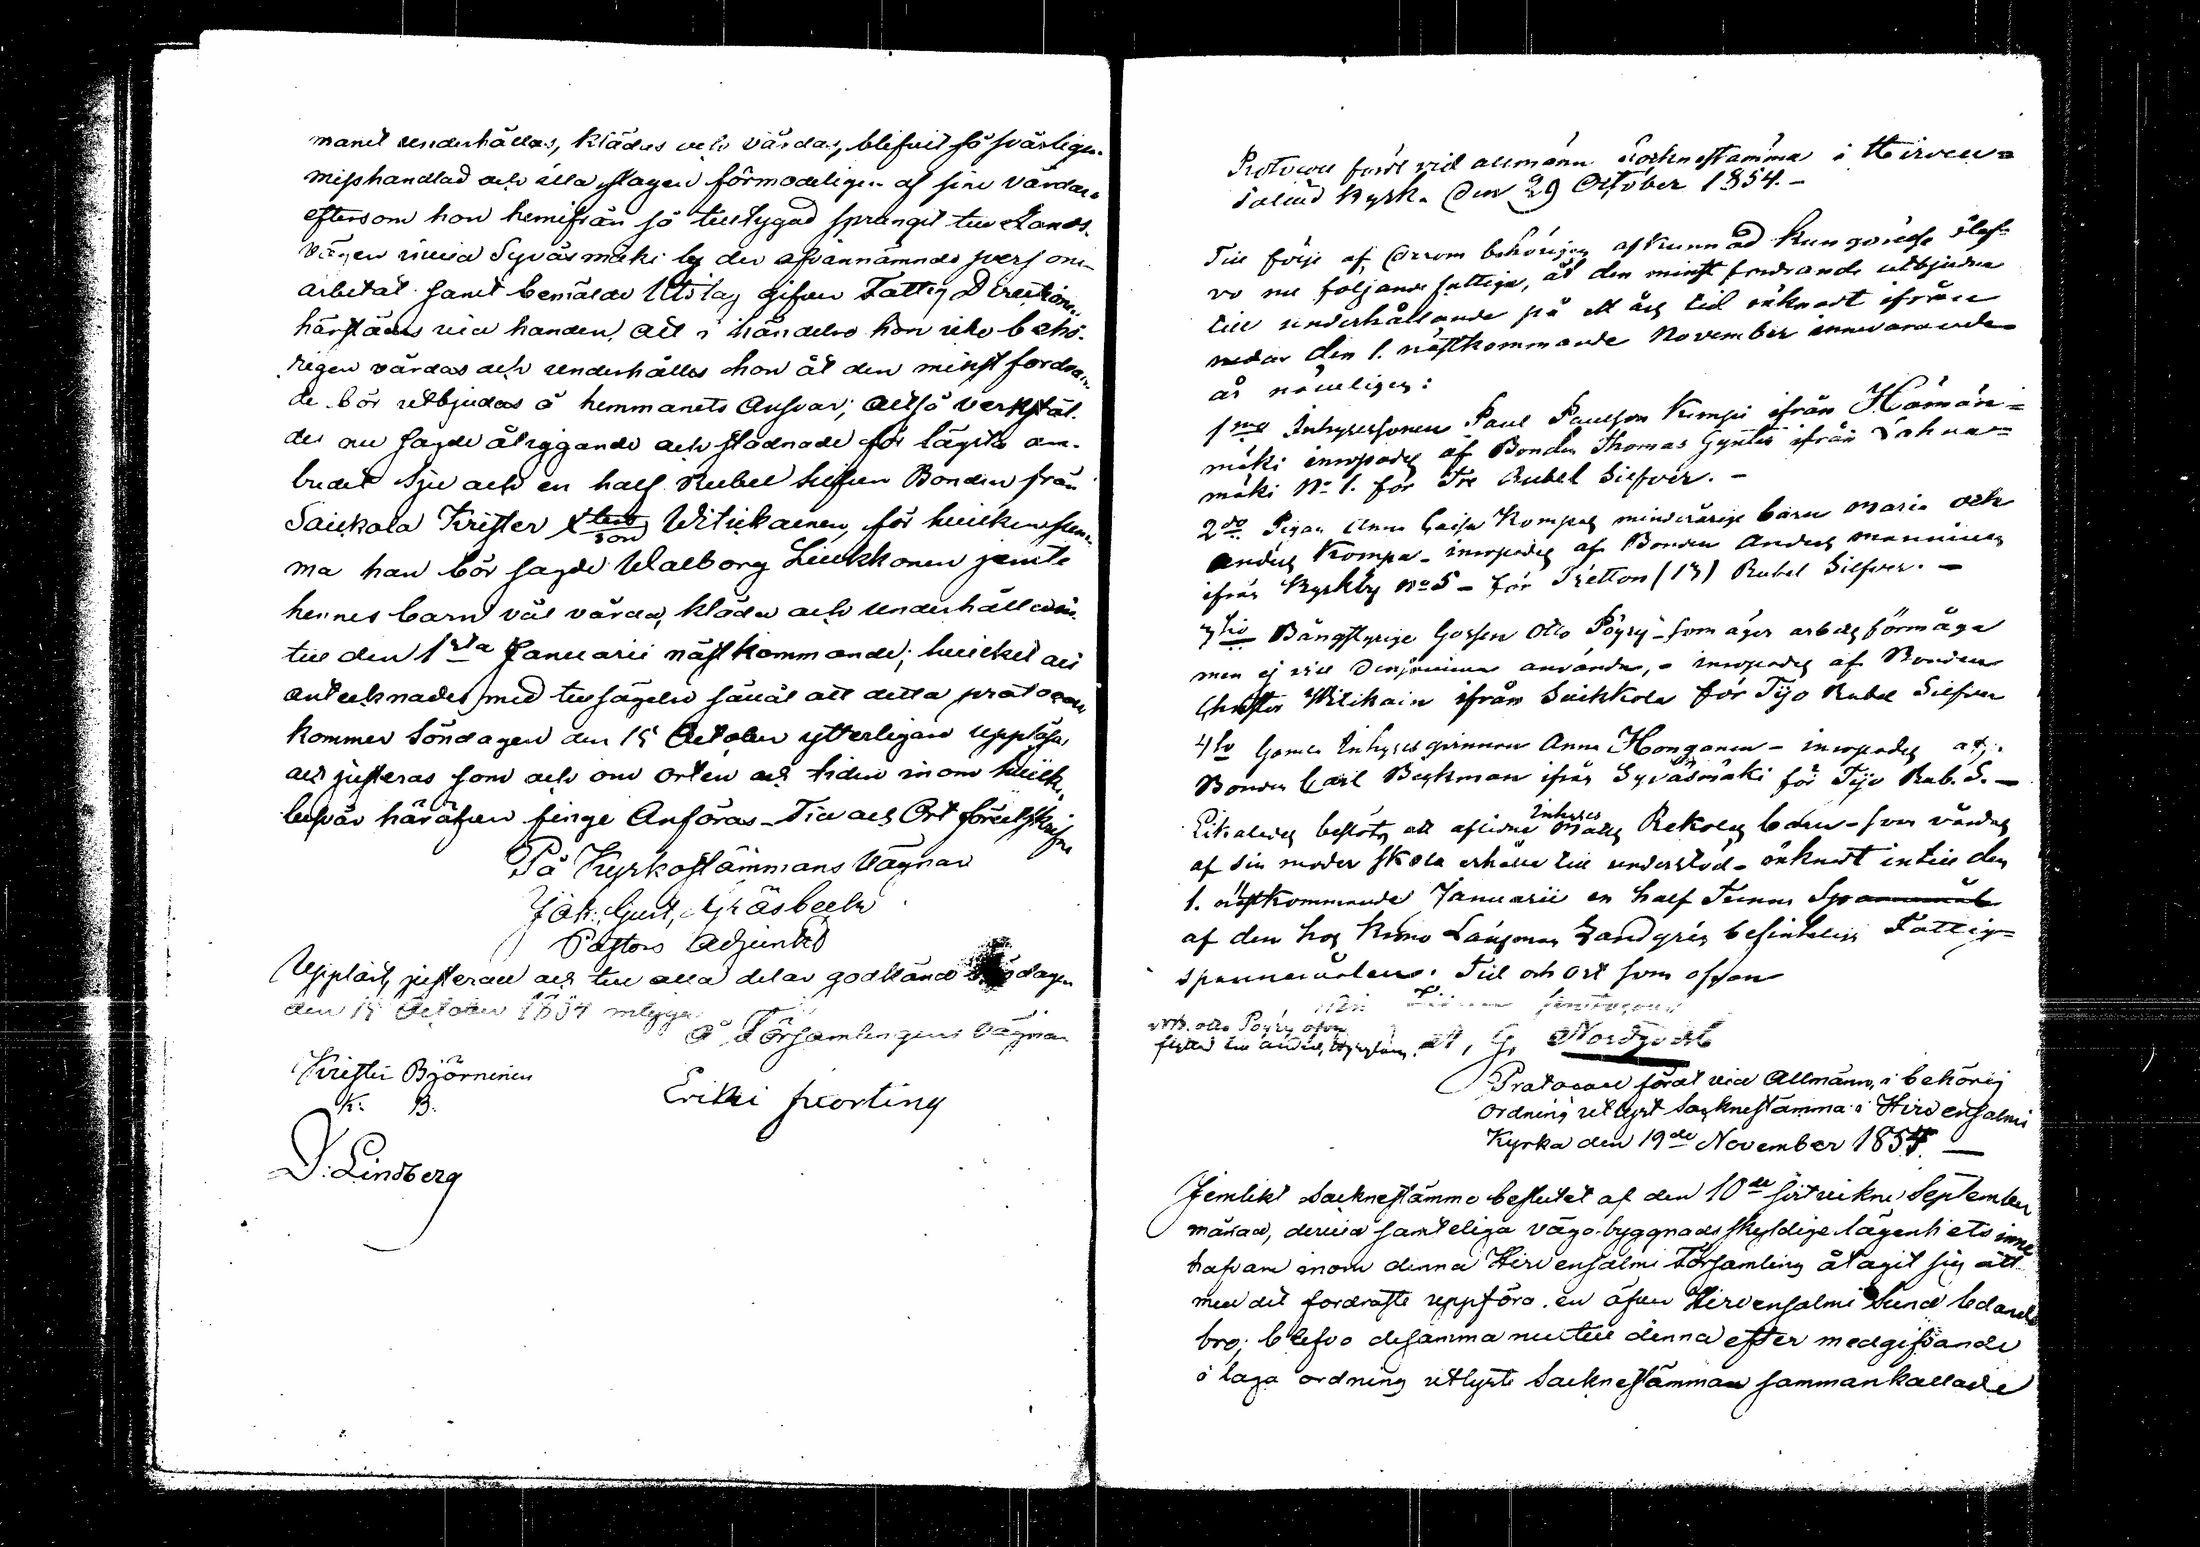 manet underhållas, klädas och vårdas, blifvit så svårligen
misshandlad och illa slagen förmodeligen af sine vårdare
eftersom hon hemifrån så tilltygad sprungit till Lands
vägen invid Syväsmäki by der ofvannämnde person
arbetat samt bemälde Utslag gifver Fattig Direktion
härstädes vid handen, att i händelse hon icke behö-
rigen vårdas och underhålles hon åt den minst fordran
de bör utbjudas å hemmanets Ansvar; altså verkstäl-
des nu sagde åliggande och stadnade för lägsta an-
budet Sju och en half Rubel silfver Bonden från
Saikkala Krister Witikainen, för hvilken sum
ma han bör sagde Walborg Liukkonen jemte
hennes barn väl vårda, kläda och underhålla in
till den 1sta Januarii nästkommande; hvilket att
antecknades med tillsägelse såväl att detta protocoll
kommer Söndagen den 15 October ytterligare uppläsas
och justeras som och om orten och tiden inom hvilk
besvär häröfver finge Anföras. Tid och Ort förutskrifne
På Kyrkostämmans Vägnar
Jak. Gust. Gräsbeck
Pastors Adjunkt
Uppläst, justerad och till alla delar godkänd Söndagen
den 15 October 1854
På Församlingens vägnar
Krister Björninen
K. B.
Erikki Horting
D. Lindberg
Protocoll fördt vid allmänn Socknestämma i Hirven=
salmi Kyrka Den 29 October 1854. -
Till följe af derom behörigen afkunnad kungörelse blef-
vo nu följande fattiga, åt den minst fordrande utbjudna
till underhållande på ett års tid räknadt ifrån
den 1. nästkommande November innevarande
år nämligen:
1mo Inhysespersonen Paul Paulsson Kimpi ifrån Hämän=
mäki inropades af Bonden Thomas Gynter ifrån Lahna=
mäki No 1. för Tre Rubel Silfver. -
2do Pigan Anna Caisa Kompas minderåriga barn Maria och
Anders Kompa - inropades af Bonden Anders Manninen
ifrån Kyrkby No 5 - för Tretton (13) Rubel Silfver. -
3tio Bångstyrige Gossen Otto Pöyry - som äger arbetsförmåga
men ej vill densamma använda, - inropades af Bonden
Christer Witikain ifrån Saikkola för Tijo Rubel Silfver
4to Gamla Inhyses qvinnan Anna Honganen - inropades af
Bonden Carl Beckman ifrån Syväsmäki för Tijo Rub. S. -
Likaledes beslöts att aflidne Inhyses Matts Rekolas barn - som vårdas
af sin moder skola erhålla till understöd - räknadt intill den
1. nästkommande Januarii en half Tunna Spannmål
af den hos Krono Länsman Zandgrén befintelige Fattig=
spannmålen. Tid och ort som ofvan
A. G. Nordqvist
Protocoll fördt vid Allmänn, i behörig
ordning utlyst Socknestämma i Hirvensalmi
Kyrka den 19de November 1854. -
Jemlikt Socknestämmo beslutet af den 10de förvikne September
månad, dervid samteliga vägo byggnads skyldige lägenhets inne
hafvare inom denna Hirvensalmi Församling åtagit sig att
med det fordraste uppföra en öfver Hirvensalmi Sund ledande
bro; blefvo desamma nu till denna efter medgifvande
i laga ordning utlyste Socknestämman sammankallade